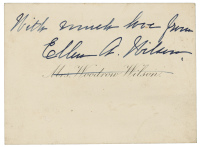 With much love from
Ellen A. Wilson.
Mrs. Woodrow Wilson